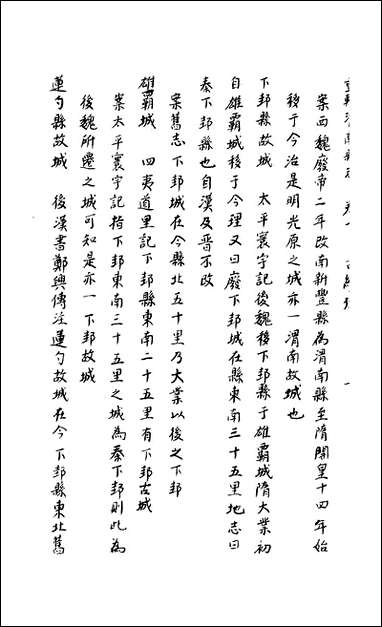 案西魏廢帝二年改南新豐縣為渭南縣至隋開皇十四年始
移于今治是明光原之城亦一渭南故城也
下邽縣故城　太平寰宇記後魏移下邽縣于雄霸城隋大業初
自雄霸城移于今理又曰廢下邽城在縣東南三十五里地志曰
秦下邽縣也自漢及晋不改
案舊志下邽城在今縣北五十里乃大業以後之下邽
雄霸城　四夷道里記下邽縣東南二十五里有下邽古城
案太平寰宇記指下邽東南三十五里之城為秦下邽則此為
後魏所遷之城可知是亦一下邽故城
蓮勺縣故城　後漢書鄭興傳注蓮勺故城在今下邽縣東北舊